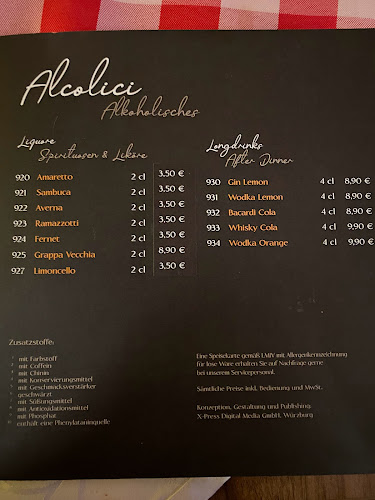 Alcolici
Alkoholisches
Liquore
Spirituosen & Liköre
920 Amaretto 2 cl 3,50 €
921 Sambuca 2 cl 3,50 €
922 Averna 2 cl 3,50 €
923 Ramazzotti 2 cl 3,50 €
924 Fernet 2 cl 3,50 €
925 Grappa Vecchia 2 cl 8,90 €
927 Limoncello 2 cl 3,50 €
Longdrinks
After Dinner
930 Gin Lemon 4 cl 8,90 €
931 Wodka Lemon 4 cl 8,90 €
932 Bacardi Cola 4 cl 8,90 €
933 Whisky Cola 4 cl 9,90 €
934 Wodka Orange 4 cl 9,90 €
Zusatzstoffe:
mit Farbstoff
mit Coffein
mit Chinin
mit Konservierungsmittel
mit Geschmacksverstärker
geschwärzt
mit Süßungsmittel
mit Antioxidationsmittel
mit Phosphat
enthält eine Phenylalaninquelle
Eine Speisekarte gemäß LMIV mit Allergenkennzeichnung
für lose Ware erhalten Sie auf Nachfrage gerne
bei unserem Servicepersonal.
Sämtliche Preise inkl. Bedienung und MwSt.
Konzeption, Gestaltung und Publishing:
X-Press Digital Media GmbH, Würzburg